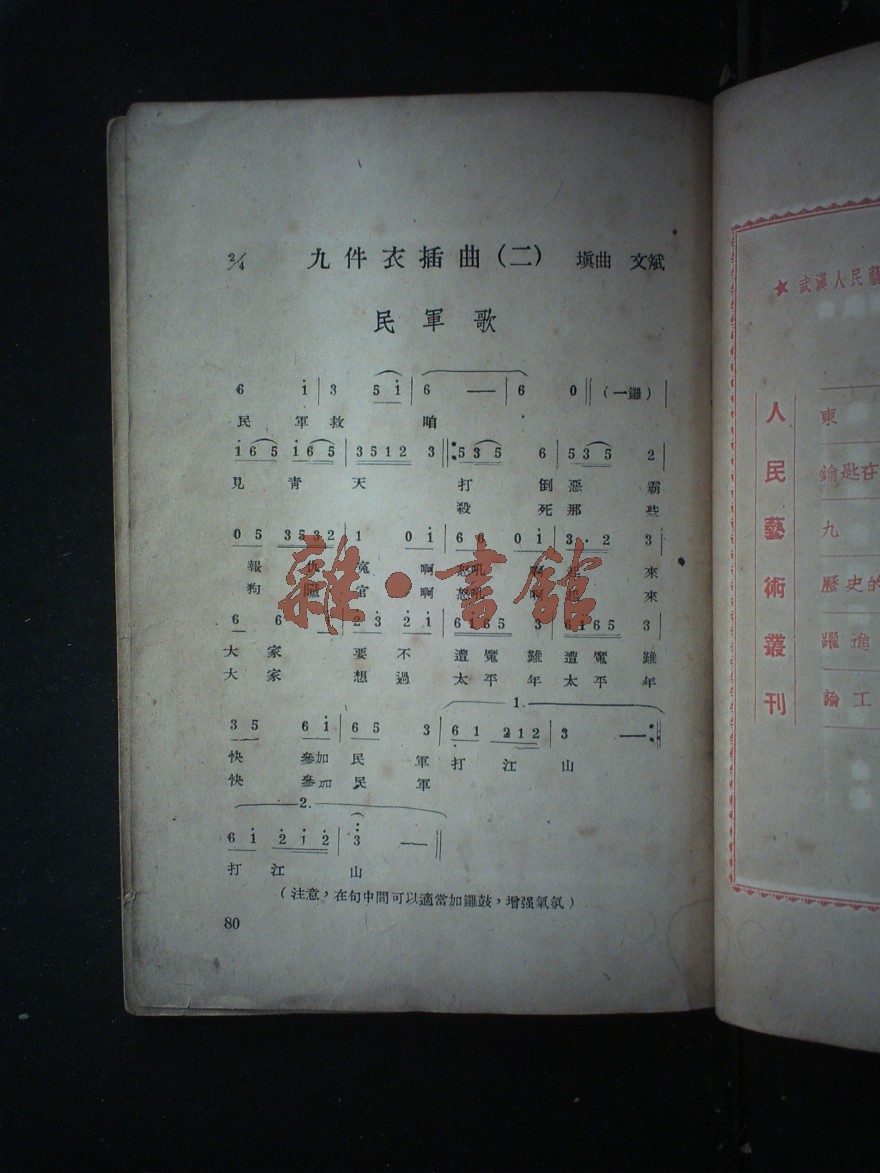 2/4 九件衣插曲(二) 塡曲 文斌
民軍歌
6 i | 3 5 i | 6 — | 6 0 || (一鑼) |
民 軍 救 咱
i 6 5 i 6 5 | 3 5 1 2 3 ||: 5 3 5 6 | 5 3 5 2 |
見 青 天 打 倒 惡 霸
殺 死 那 些
0 5 3 5 3 2 | 1 0 i | 6 6 0 i | 3 · 2 3 |
報 仇 寃 啊 怒吼 啊 起 來
狗 贓 官 啊 怒吼 啊 起 來
6 6 | 2 3 2 i | 6 i 6 5 3 | 6 i 6 5 3 |
大 家 要 不 遭 魔 難 遭 魔 難
大 家 想 過 太 平 年 太 平 年
1.
3 5 6 i | 6 5 3 | 6 1 2 1 2 | 3 — :||
快 參加 民 軍 打 江 山
快 參加 民 軍
2.
6 i 2 i 2 | 3 — ||
打 江 山
(注意,在句中間可以適當加鑼鼓,增强氣氛)
80
雜·書館
★武漢人民藝
人民藝術叢刊
東
鑰匙在
九
歷史的
躍進
論工